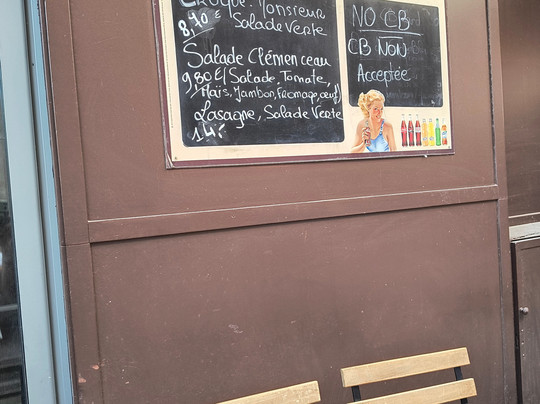 Croque. Monsieur
8,70 € Salade Verte
Salade Clémenceau
9,80 € (Salade, Tomate,
Maïs, Jambon, Fromage, œuf)
Lasagne, Salade Verte
14€
NO CB
CB NON
Acceptée